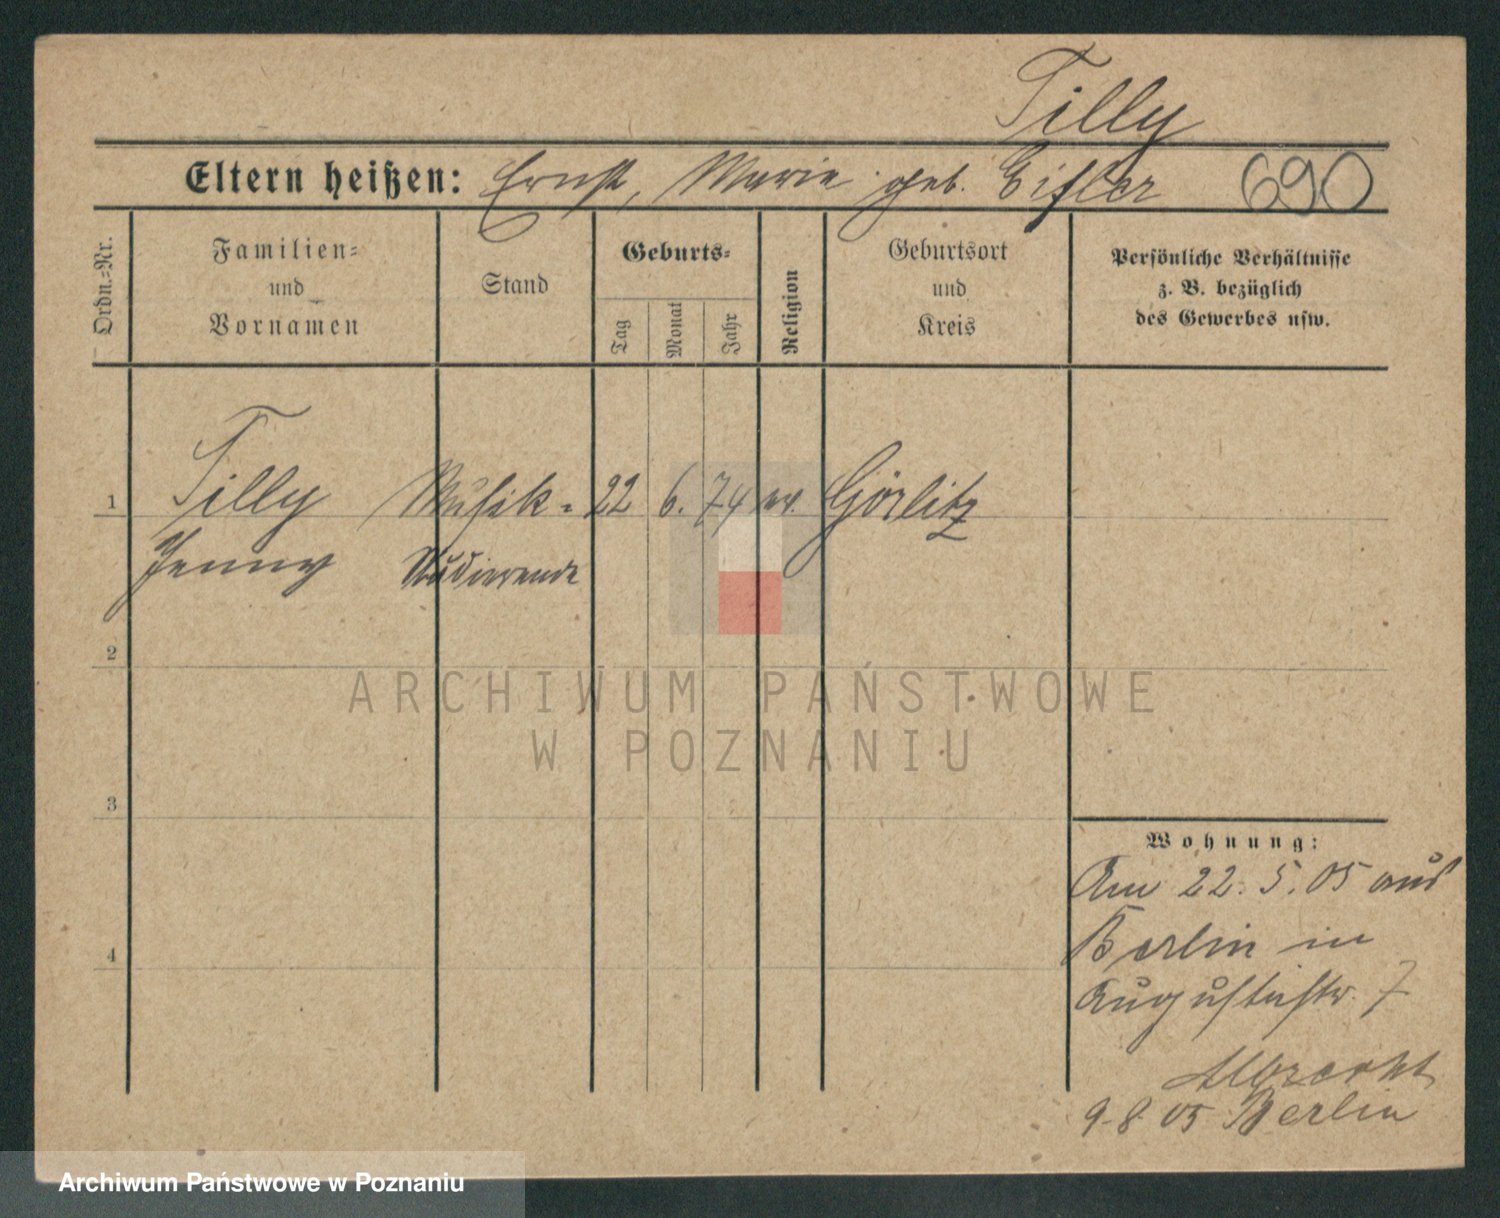 Tilly
Eltern heißen: Ernst, Marie geb. Eifler 690
Ordn.=Nr.
Familien=
und
Vornamen
Stand
Geburts=
Tag
Monat
Jahr
Religion
Geburtsort
und
Kreis
Persönliche Verhältnisse
z. B. bezüglich
des Gewerbes usw.
1 Tilly Musik= 22 6. 74 ev. Görlitz
Jenny Studierende
2
ARCHIWUM PAŃSTWOWE
W POZNANIU
3
Wohnung:
Am 22. 5. 05 aus
Berlin in
4
Augustastr. 7
Albrecht
9. 8. 05 Berlin
Archiwum Państwowe w Poznaniu